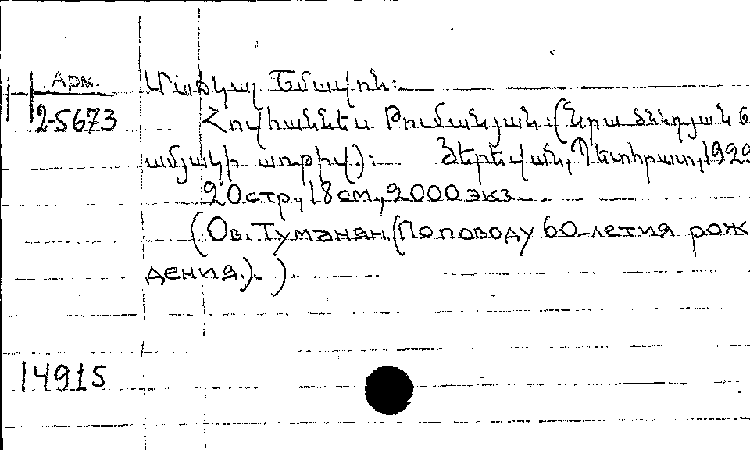 Арм.
2-5673
Մարկար Եմալյոն։
Հովհաննես Թումանյան. (Նրա ծննդյան 6
ամյակի առթիվ.)։ Յերեվան, Պետհրատ, 1929
20 стр., 18 см., 2000 экз.
(Ов. Туманян. (По поводу 60 летия рож
дения.). )
14915